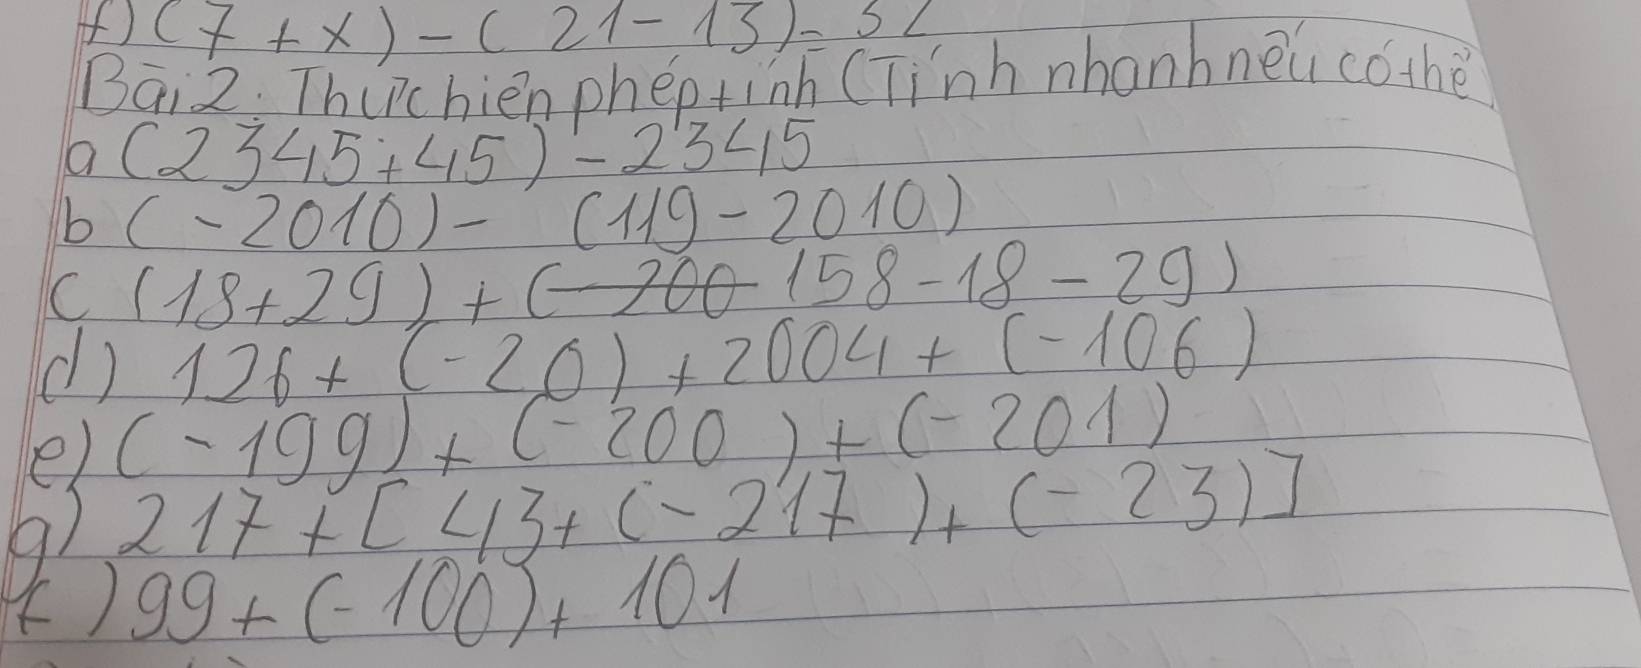 f) (7 + x) - ( 21 - 13) = 32
Bài 2: Thực hiện phép tính (Tính nhanh nếu có thể
a (2345 + 45) - 2345
b (-2010) - (119 - 2010)
c (18 + 29) + ( 158 - 18 - 29)
d) 126 + (-20) + 2004 + (-106)
e) (-199) + (-200) + (-201)
g) 217 + [ 43 + (-217) + (-23)]
f) 99 + (-100) + 101